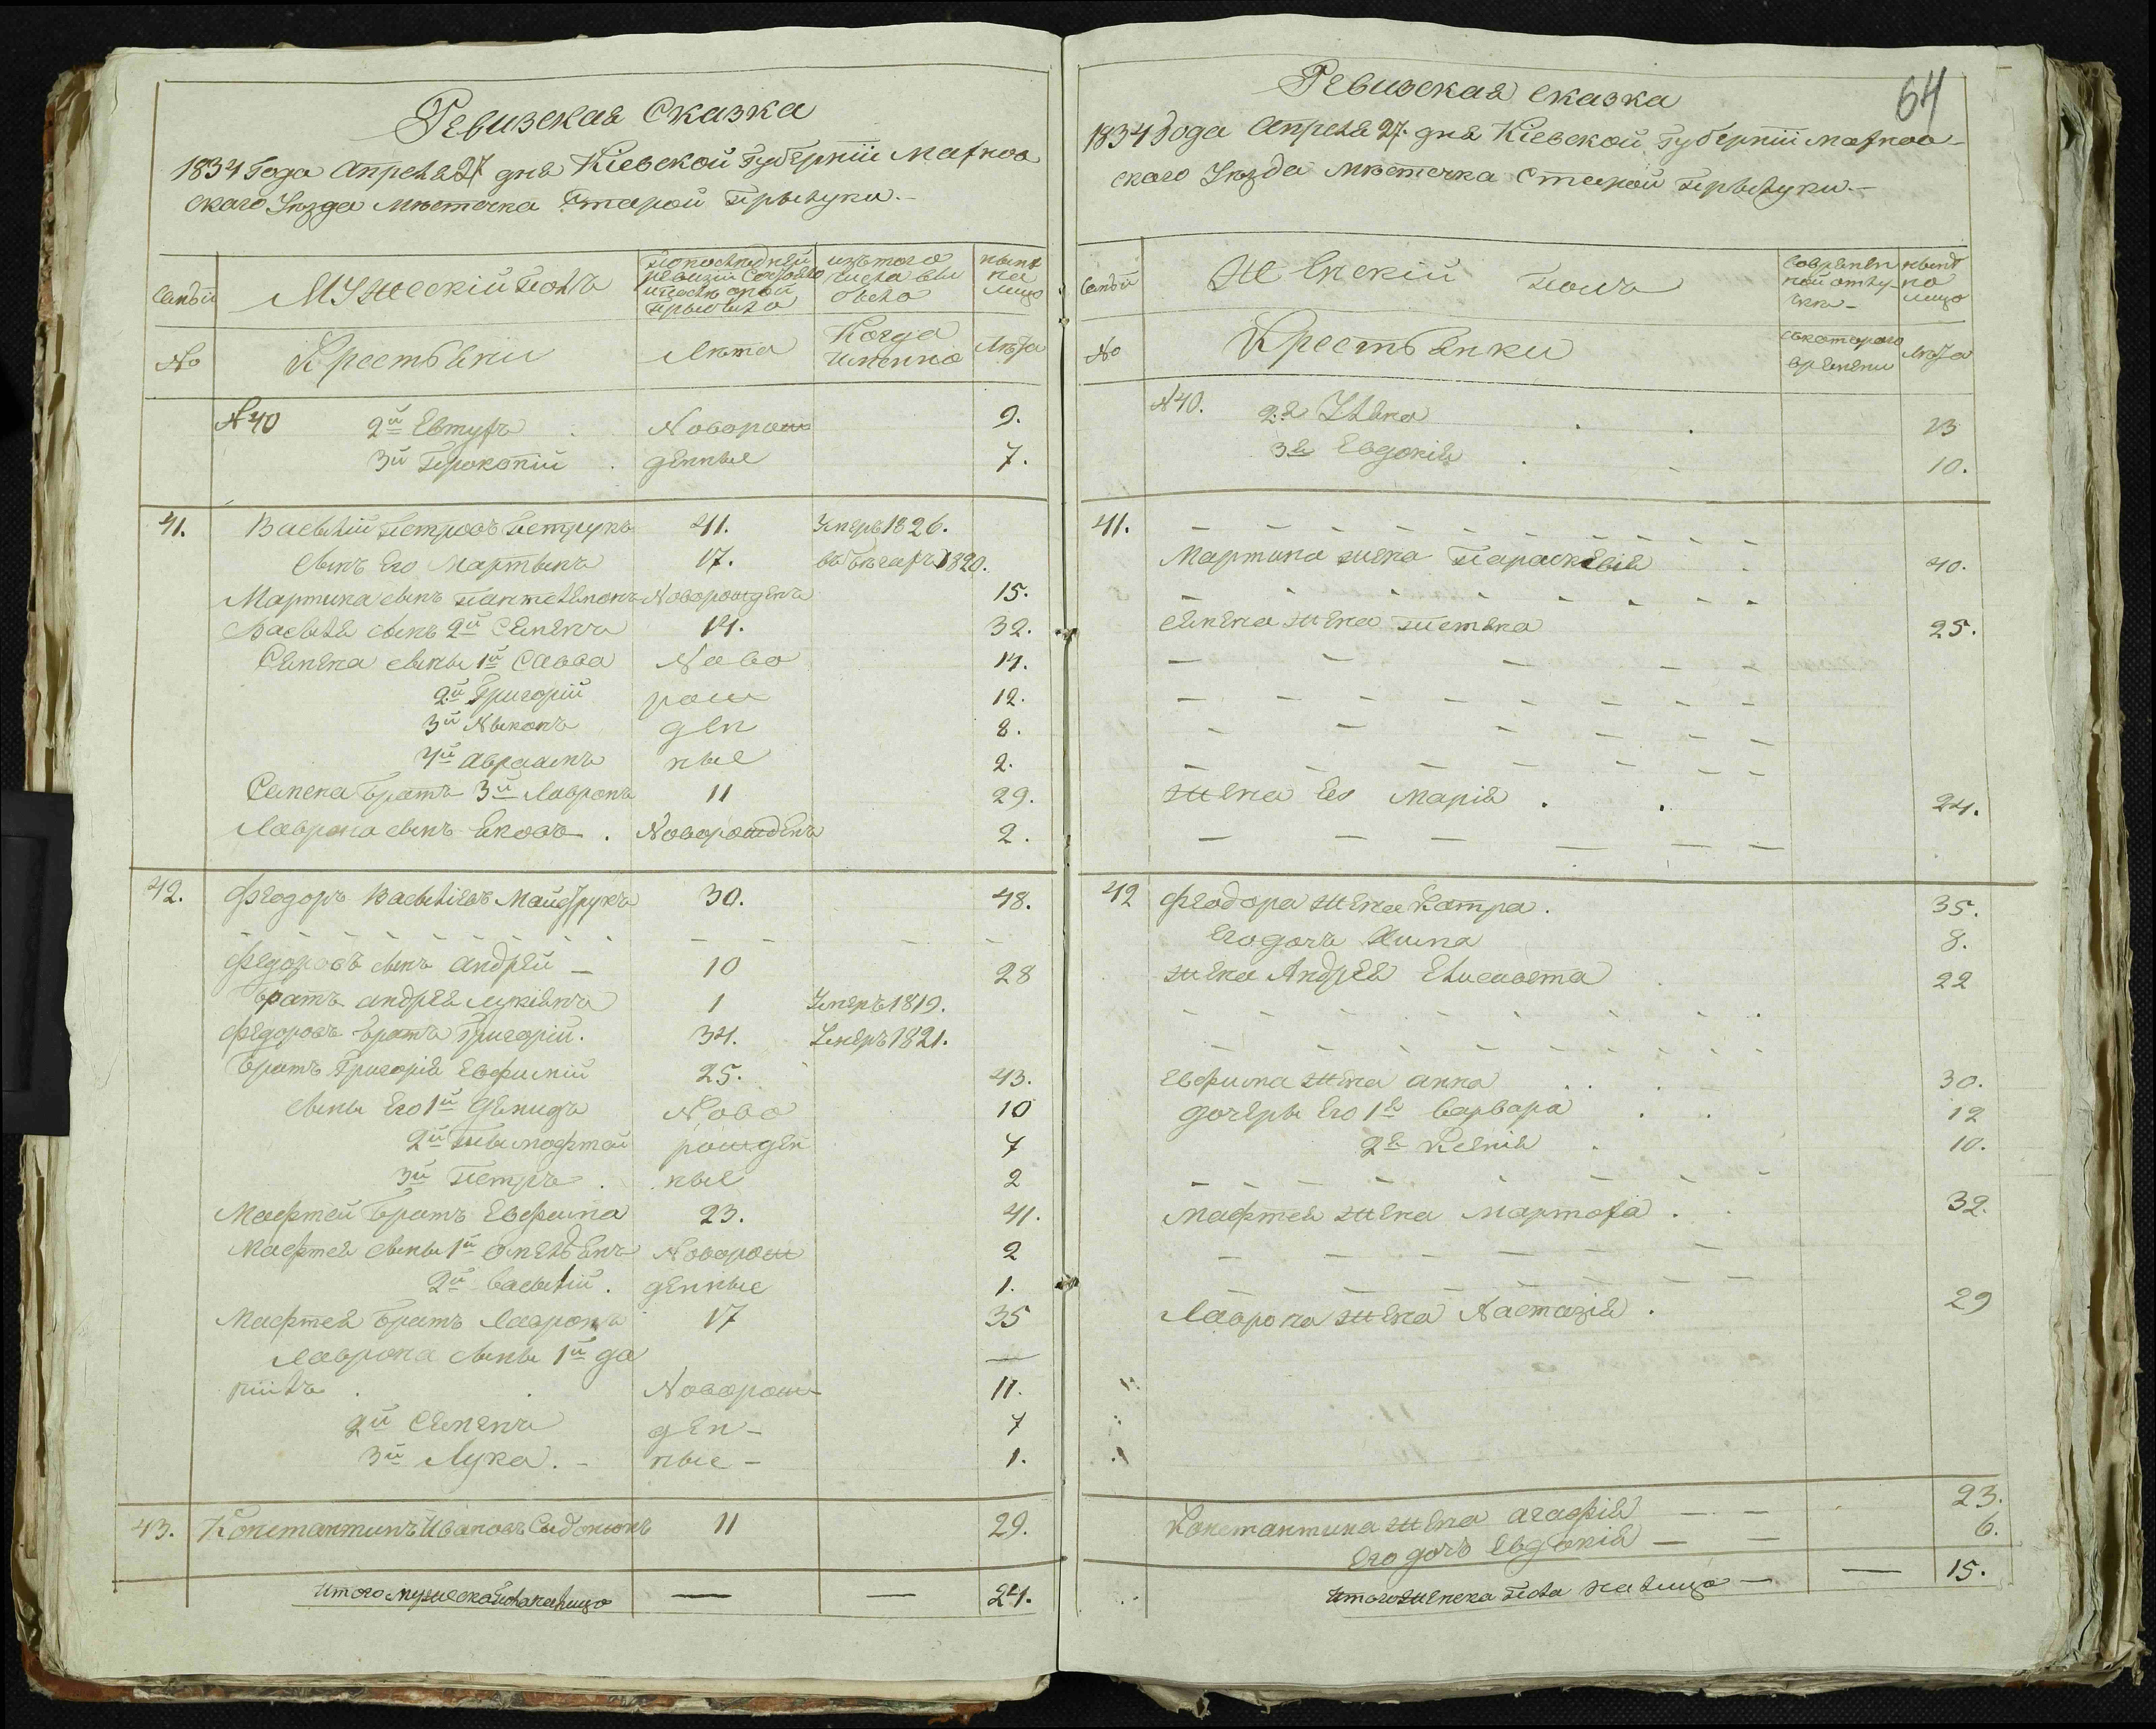 Ревизская Сказка
1834 Года Апреля 27 дня Кіевской Губерніи Махнов
скаго Уезда Мѣстечка Старой Прылуки.
Семьи
Мужескій полъ
По последней ревизіи Состояло и после оной прыбыло
изъ того числа выбыло
ныне на лицо
№
Крестьяни
Лѣта
Когда именно
Лѣта
№ 40 2й Евтухъ Новорож 9.
3й Прокопій денные 7.
41. Васылій Петровъ Петрукъ 41. Умеръ 1826.
сынъ Его Мартынъ 17. въ бегахъ 1820.
Мартина сынъ Пантелемонъ Новорожденъ 15.
Васыля сынъ 2й Семенъ 14. 32.
Семена сыны 1й Савва Ново 14.
2й Григорій рож 12.
3й Ныконъ ден 8.
4й Авраамъ ные 2.
Семена братъ 3й Лавронъ 11 29.
Лаврона сынъ Яковъ . Новорожденъ 2.
42. Феодоръ Васыліевъ Майструкъ 30. 48.
Федоровъ сынъ Андрей — 10 28
братъ Андрея Лукіянъ 1 Умеръ 1819.
Федоровъ братъ Григорій. 34. Умеръ 1821.
братъ Григорія Евфимій 25. 43.
сыны Его 1й Демидъ Ново 10
2й Тымофтей рожден 7
3й Петръ . ные 2
Мафтей братъ Евфима 23. 41.
Мафтея сыны 1й Омельянъ Новорож 2
2й Васылій . денные 1.
Мафтея братъ Лавронъ 17 35
Лаврона сыны 1й Да
ніилъ . . Новорож 11.
2й Семенъ ден- 7
3й Лука . - ные - 1.
43. Константинъ Ивановъ Сыдонюкъ 11 29.
Итого мужеска пола на лицо — — 24.
64
Ревизская сказка
1834 Года Апреля 27 дня Кіевской Губерніи Махнов-
скаго Уезда Мѣстечка Старой Прылуки.-
Семьи
Женскій полъ
Во временной отлучки-
ныне на лицо
№
Крестьянки
Съ котораго времени
Лѣта
№ 40. 2я Уляна . . 13
3я Евдокія . . 10.
41.
Мартина жена Параскевія . 40.
Семена жена Тетяна 25.
Жена Его Марія . . 24.
42 Феодора жена Катра . 35.
Его дочъ Хима 8.
жена Андрея Елисавета . 22
Евфима жена Анна . . . 30.
дочеры Его 1я Варвара . . 12
2я Ксенія . 10.
Мафтея жена Мартоха . . 32.
Лаврона жена Настазія . 29
Константина жена Агафія — — 23.
Его дочъ Евдокія — — 6.
Итого женска пола на лицо — — 15.